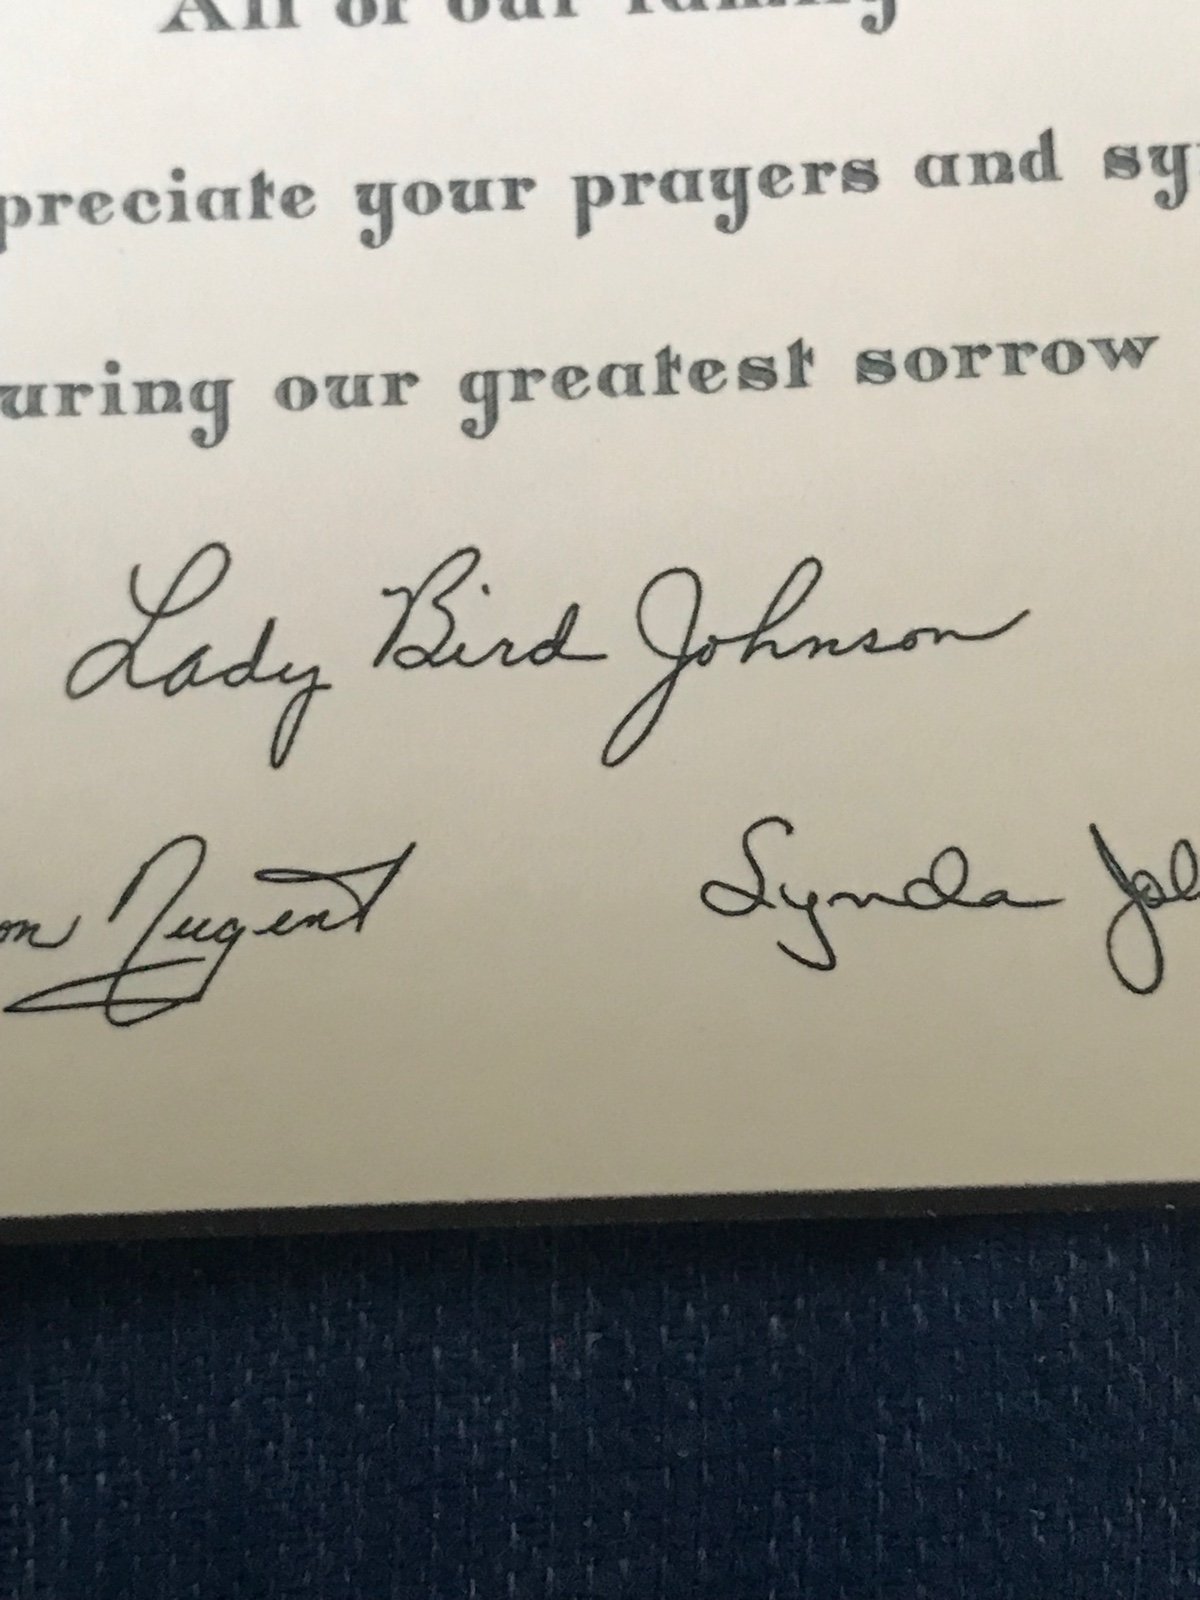 All of our family
preciate your prayers and sy
uring our greatest sorrow
Lady Bird Johnson
on Nugent Lynda Joh